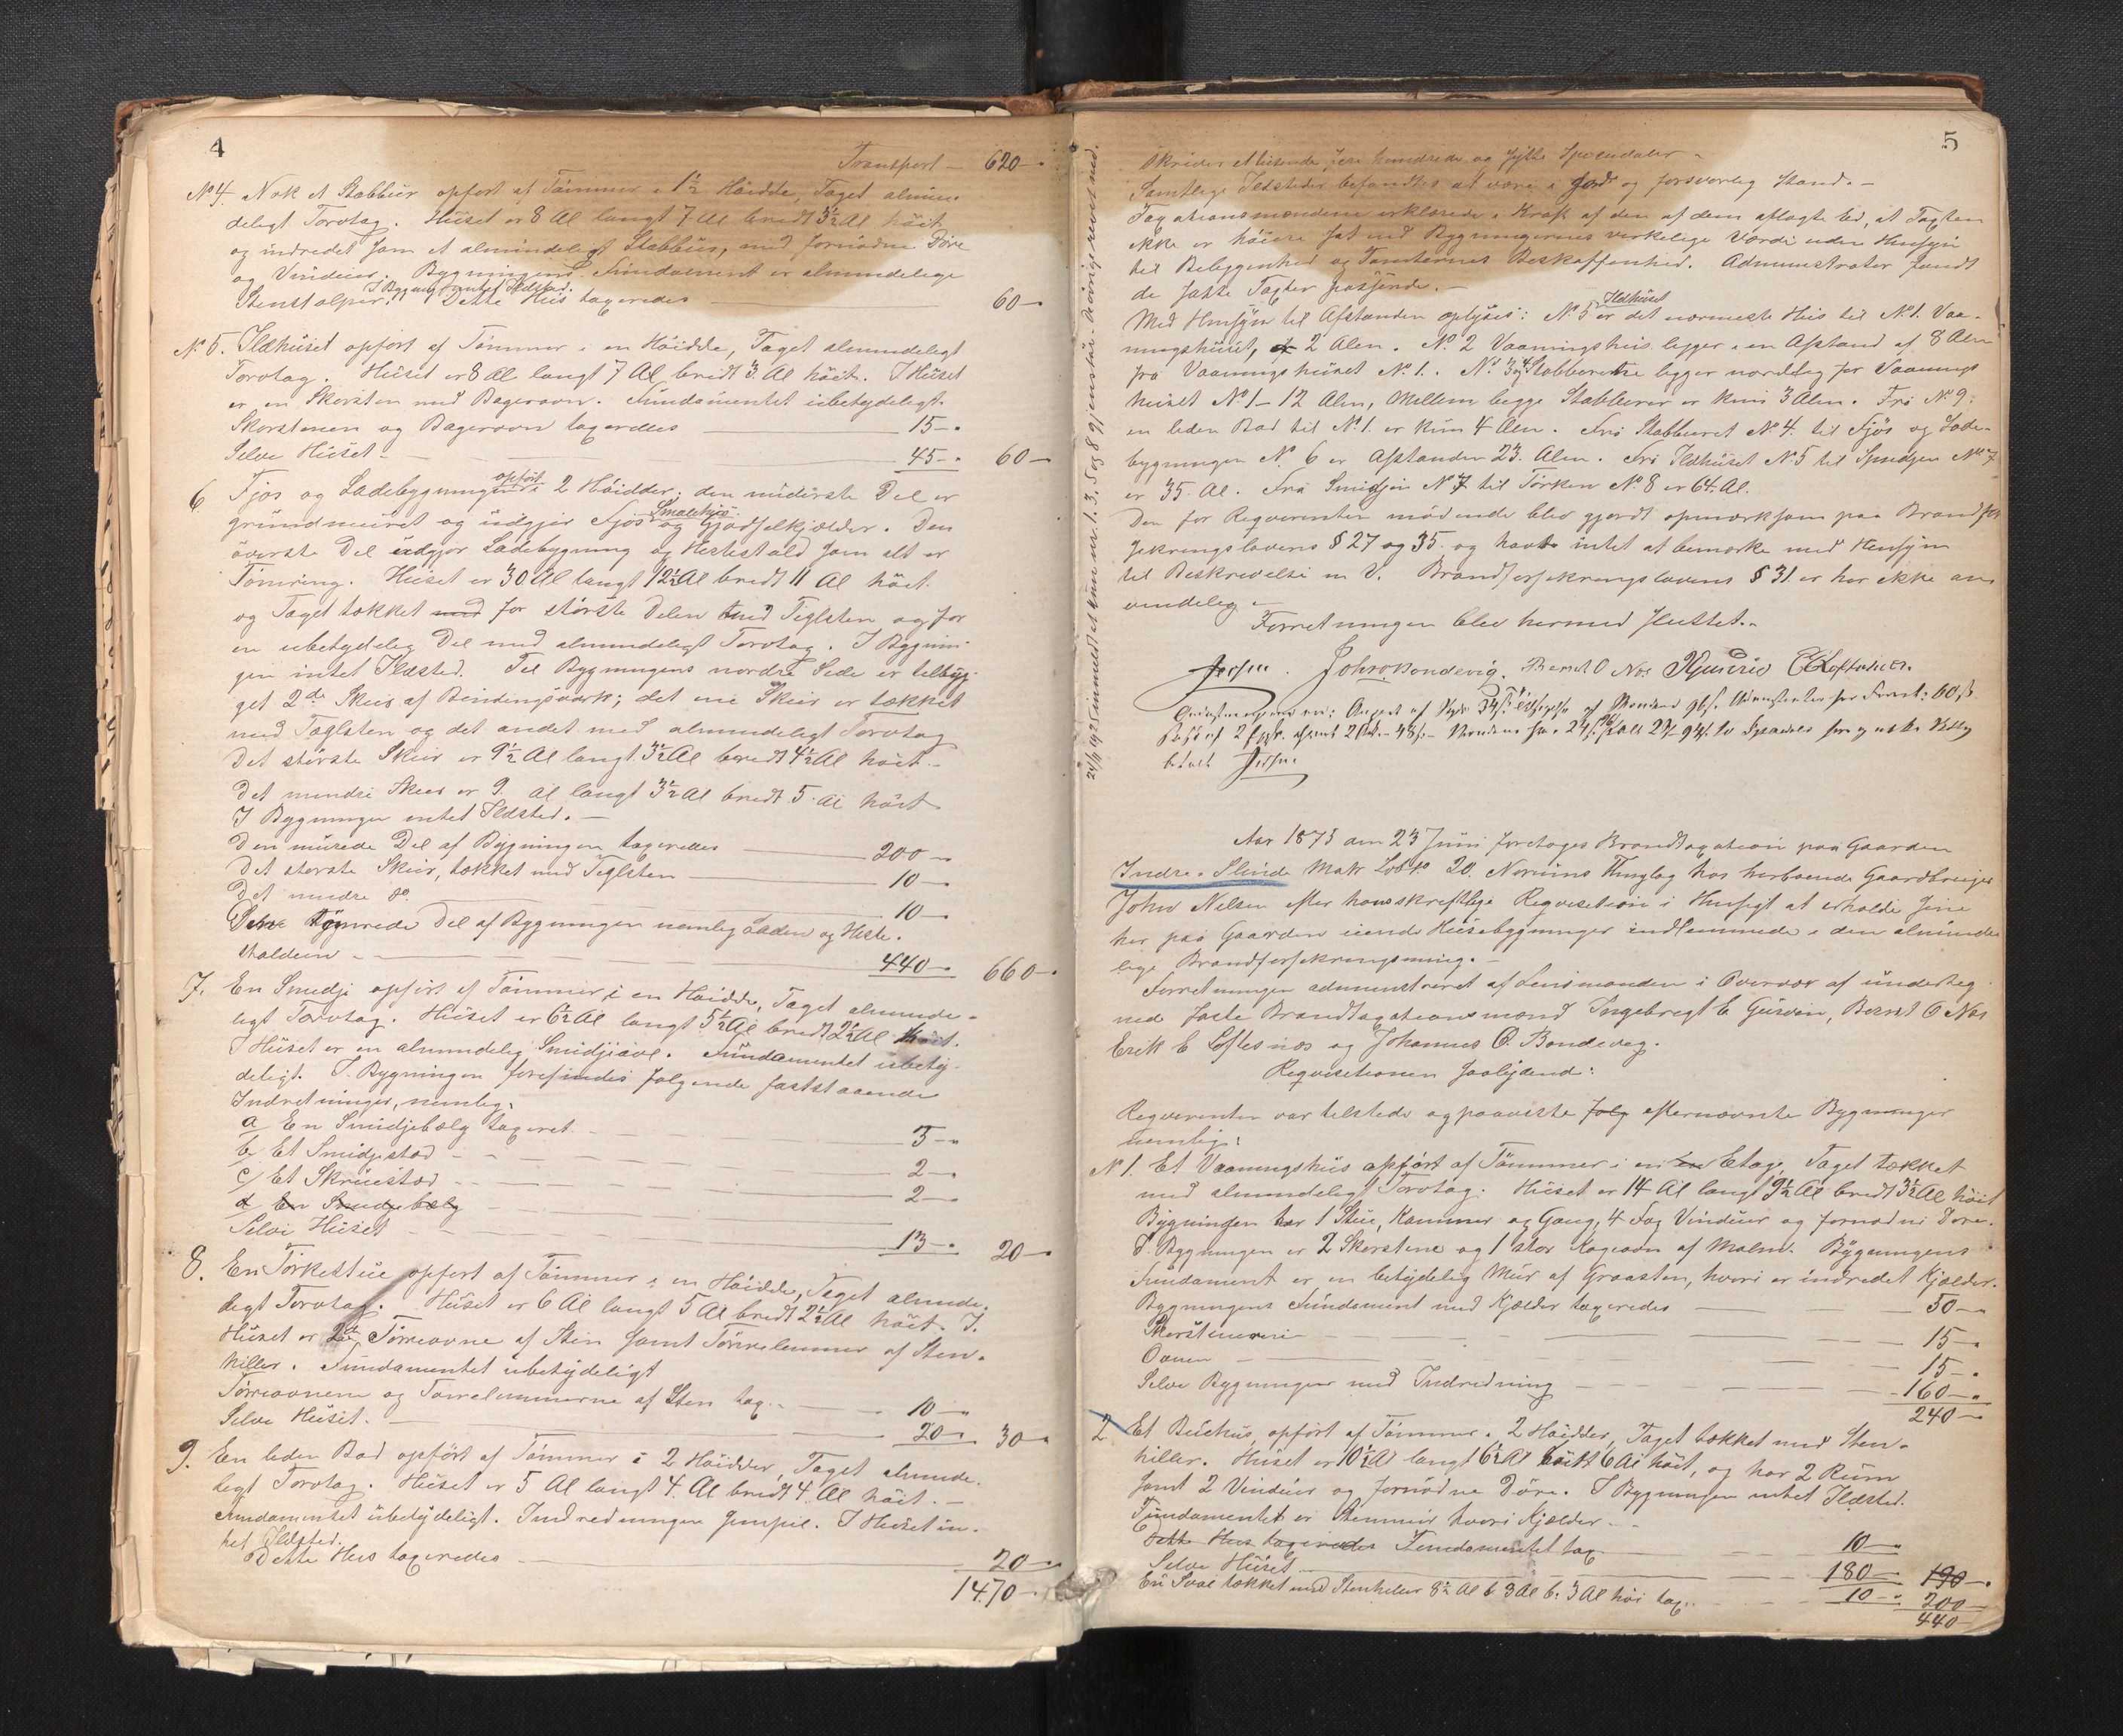 4
Transport — 620 —
No 4. Nok et Stabbur opført af Tømmer i 1½ Høidde, Taget almin-
deligt Torvtag. Huset er 8 Al langt 7 Al bredt 3½ Al høit,
og indredet som et almindeligt Stabbur, med fornødne Døre
og Vinduer. Bygningens Fundament er almindelige
I Bygningen intet Ildsted.
Stenstolper. Dette Hus taxeredes — 60 —
No 5. Ildhuset opført af Tømmer i en Høidde, Taget almindeligt
Torvtag. Huset er 8 Al langt 7 Al bredt 3 Al høit. I Huset
er en Skorsten med Bagerovn. Fundamentet ubetydeligt.
Skorstenen og Bagerovn taxeredes — 15 —
Selve Huset — 45 — 60 —
6. Fjøs og Ladebygningen opført i 2 Høidder; den nederste Del er
grundmuret og udgjør Fjøs Smalefjøs og Gjødselkjælder. Den
øverste Del udgjør Ladebygning og Hestestald som alt er
Tømring. Huset er 30 Al langt 12½ Al bredt 11 Al høit
og Taget tækket med for største Delen med Teglsten og for
en ubetydelig Del med almindeligt Torvtag. I Bygnin-
gen intet Ildsted. Til Bygningens nordre Side er tilbyg-
get 2de Skur af Bindingsværk; det ene Skur er tækket
med Taglsten og det andet med almindeligt Torvtag
Det største Skur er 9½ Al langt 3½ Al bredt 4½ Al høit.—
Det mindre Skur er 9 Al langt 3½ Al bredt 5 Al høit
I Bygningen intet Ildsted. —
Den murede Del af Bygningen taxeredes — 200 —
Det største Skur, tækket med Teglsten — 10 —
Det mindre do — 10 —
Den tømrede Del af Bygningen nemlig Laden og Heste-
stalden — 440 — 660 —
7. En Smedje opført af Tømmer i en Høidde, Taget alminde-
ligt Torvtag. Huset er 6½ Al langt 5½ Al bredt 2½ Al høit.
I Huset er en almindelig Smidjeavl. Fundamentet ubety-
deligt. I Bygningen forefindes følgende faststaaende
Indretninger, nemlig:
a/ En Smidjebælg taxeret — 3 —
b/ Et Smidjestød — 2 —
c/ Et Skruestød — 2 —
d En Smidjebælg
Selve Huset — 13 — 20 —
8. En Tørkestue opført af Tømmer i en Høidde, Taget alminde-
ligt Torvtag. Huset er 6 Al langt 5 Al bredt 2½ Al høit. I
Huset er 2de Tørreovne af Sten samt Tørrelemmer af Sten-
hiller. Fundamentet ubetydeligt
Tørreovnene og Tørrelemmerne af Sten tax. — 10 —
Selve Huset. — 20 — 30 —
9. En liden Bod opført af Tømmer i 2 Høidder, Taget alminde-
ligt Torvtag. Huset er 5 Al langt 4 Al bredt 4 Al høit. —
Fundamentet ubetydeligt. Indredningen simpel. I Huset in-
tet Ildsted.
Dette Hus taxeredes — 20 —
1470 —
5
skriver et tusinde fire hundrede og sytti Speciedaler —
Samtlige Ildsteder befandtes at være i god og forsvarlig Stand. —
Taxationsmændene erklærede i Kraft af den af dem aflagte Ed, at Taxten
ikke er høiere sat end Bygningernes virkelige Værdi uden Hensyn
til Beliggenhed og Tomternes Beskaffenhed. Administrator fandt
de satte Taxter passende. —
Med Hensyn til Afstanden oplyses: No 5 Ildhuset er det nærmeste Hus til No 1. Vaa-
ningshuset, 2 Alen. No 2 Vaaningshus ligger i en Afstand af 8 Alen
fra Vaaningshuset No 1. No 3 og 4 Stabburene ligger nordlig for Vaanings
huset No 1 – 12 Alen, Mellem begge Stabburer er kun 3 Alen. Fra No 9:
en liden Bod til No 1. er kun 4 Alen. Fra Stabburet No 4 til Fjøs og Lade-
bygningen No 6 er Afstanden 23 Alen. Fra Ildhuset No 5 til Smedjen No 7
er 35 Al. Fra Smidjen No 7 til Tørken No 8 er 64 Al.
Den for Reqvirenten mødende blev gjordt opmærksom paa Brandfor
sikringslovens § 27 og 35 og havde intet at bemærke med Hensyn
til Beskrivelse m V. Brandforsikringslovens § 31 er her ikke an-
vendelig —
Forretningen blev hermed sluttet. —
Johs O Bondevig. Bernt O Nos E E Loftesnes.
betalt
24/11 1925 innmeldt at kun nr. 1, 3, 5 og 8 gjenstår. De øvrige revet ned.
Aar 1873 den 23 Juni foretoges Brandtaxation paa Gaarden
Indre-Slinde Matr Løbno 20. Norums Thinglag hos herboende Gaardbruger
John Nelsen efter hans skriftlige Reqvisition i Hensigt at erholde sine
her paa Gaarden eiende Husebygninger indlemmede i den alminde
lige Brandforsikringsindretning. —
Forretningen administreret af Lensmanden i Overvær af underteg
nede faste Brandtaxationsmænd Ingebregt E Gurvin, Bernt O Nos
Erik E Loftesnæs og Johannes O. Bondevig.
Reqvisitionen saalydende:
Reqvirenten var tilstede og paaviste følg efternævnte Bygninger
nemlig:
No 1. Et Vaaningshus opført af Tømmer i en Etage, Taget tækket
med almindeligt Torvtag. Huset er 14 Al langt 9½ Al bredt 3½ Al høit
Bygningen har 1 Stue, Kammer og Gang, 4 Fag Vinduer og fornødne Døre.
I Bygningen er 2 Skorstene og 1 stor Kogeovn af Malm. Bygningens
Fundament er en betydelig Mur af Graasten, hvori er indredet Kjælder.
Bygningens Fundament med Kjælder taxeredes — 50 —
Skorstenerne — 15 —
Ovnen — 15 —
Selve Bygningen med Indredning — 160 —
240 —
2. Et Buehus opført af Tømmer i 2 Høidder, Taget tækket med Sten-
hiller. Huset er 10½ Al langt 6½ Al bredt 6 Al høit, og har 2 Rum
samt 2 Vinduer og fornødne Døre. I Bygningen intet Ildsted.
Fundamentet er Stenmur hvori Kjælder. —
Dette Hus taxeredes Fundamentet tax — 10 —
Selve Huset — 180 — 190 —
En Sval tækket med Stenheller 8½ Al l. 3 Al b. 3 Al høi tax. — 10 — 200 —
440 —